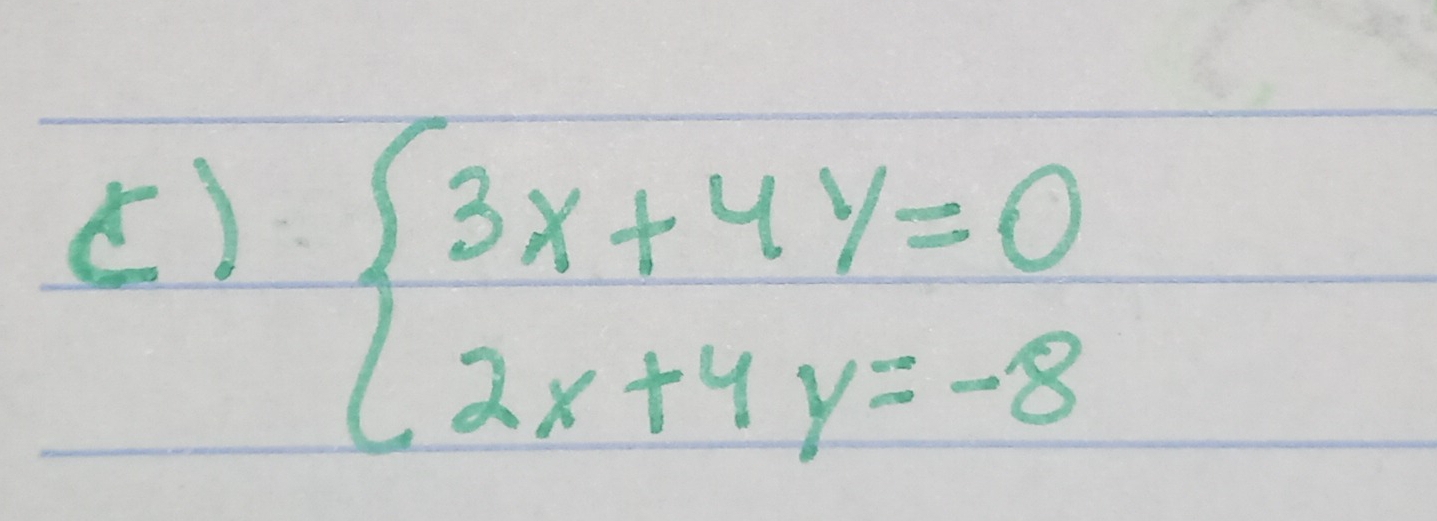 c) { 3x + 4y = 0
2x + 4y = -8